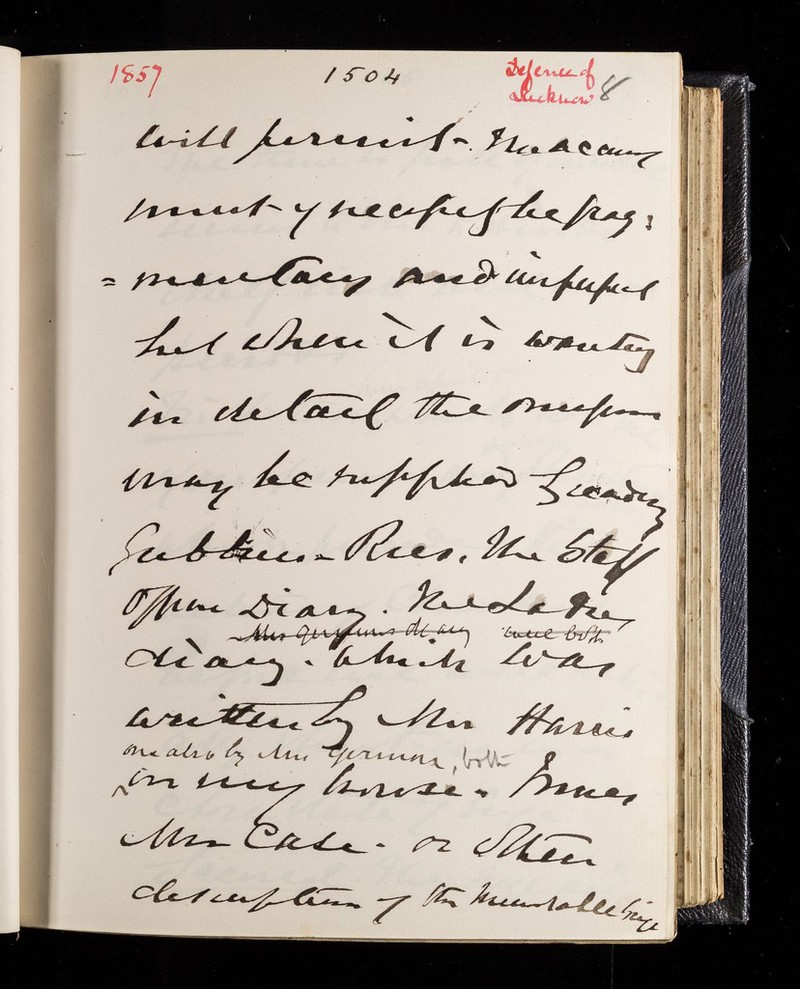 1857 1504 Defence of
Lucknow 8
will permit - The account
must of necessity be frag:
=mentary and imperfect
but where it is wanting
in detail the omissions
may be supplied by reading
Gubbins - Rees. The Staff
Officers Diary. The Ladies
Mrs Germons diary were both
diary. Which was
written by Mrs Harris
one also by Mrs Germon, both
in my house. Innes
Mrs Case. or other
description of the memorable siege